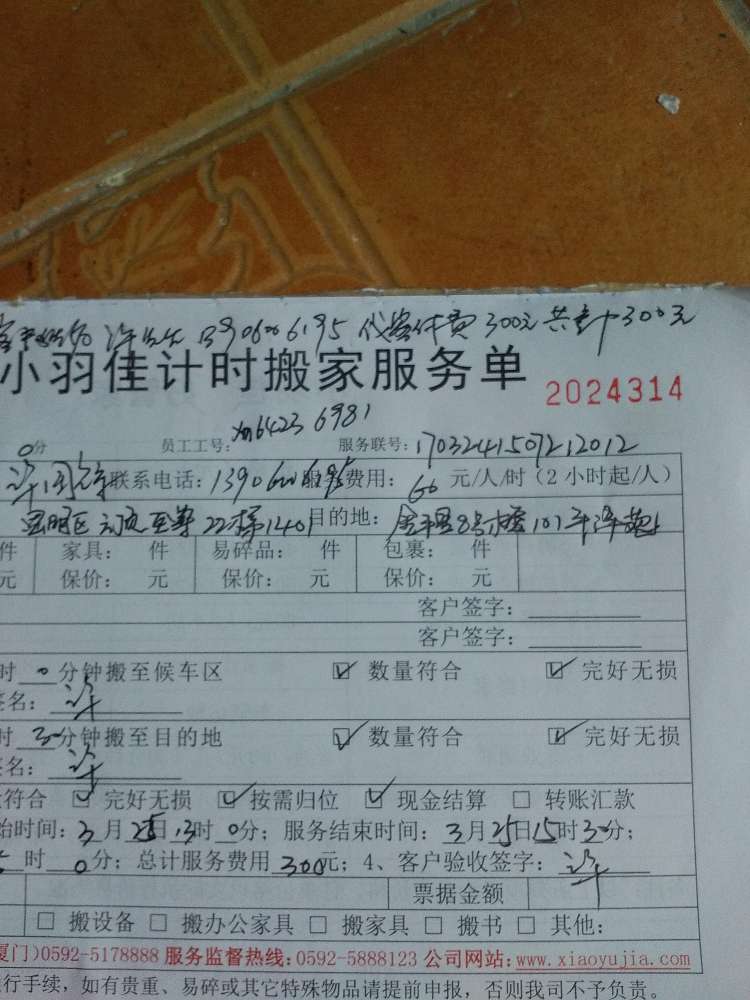 许先生 代 费 300元 共计300元
小羽佳计时搬家服务单 2024314
0分 员工工号: 6423 6981 服务联号: 1703241507212012
许国 联系电话: 1390 服务费用: 60 元/人/时(2小时起/人)
思明区 22梯1401 目的地: 8号楼101
件 家具: 件 易碎品: 件 包裹: 件
元 保价: 元 保价: 元 保价: 元
客户签字:
客户签字:
时 0分钟搬至候车区 ☑ 数量符合 ☑ 完好无损
签名: 许
时 30分钟搬至目的地 ☑ 数量符合 ☑ 完好无损
签名: 许
符合 ☑ 完好无损 ☑ 按需归位 ☑ 现金结算 □ 转账汇款
始时间: 3月25日13时0分; 服务结束时间: 3月25日15时30分;
时 0分; 总计服务费用 300元; 4、客户验收签字: 许
票据金额
□ 搬设备 □ 搬办公家具 □ 搬家具 □ 搬书 □ 其他:
厦门)0592-5178888 服务监督热线:0592-5888123 公司网站:www.xiaoyujia.com
行手续,如有贵重、易碎或其它特殊物品请提前申报,否则我司不予负责。